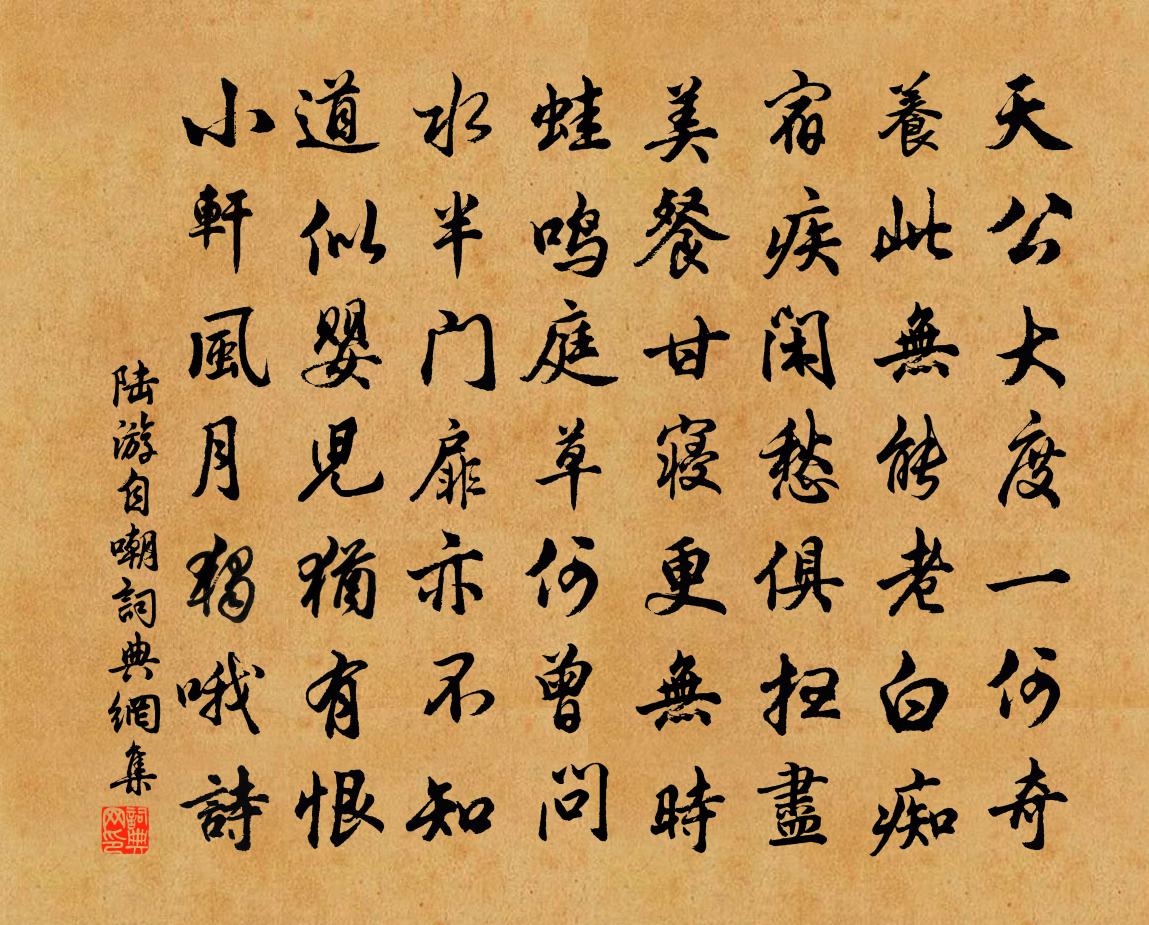 天公大度一何奇
養此無能老白痴
宿疾閑愁俱掃盡
美餐甘寢更無時
蛙鸣庭草何曾問
水半门扉亦不知
道似嬰兒猶有恨
小軒風月獨哦詩
陆游自嘲詞典網集
詞典网印